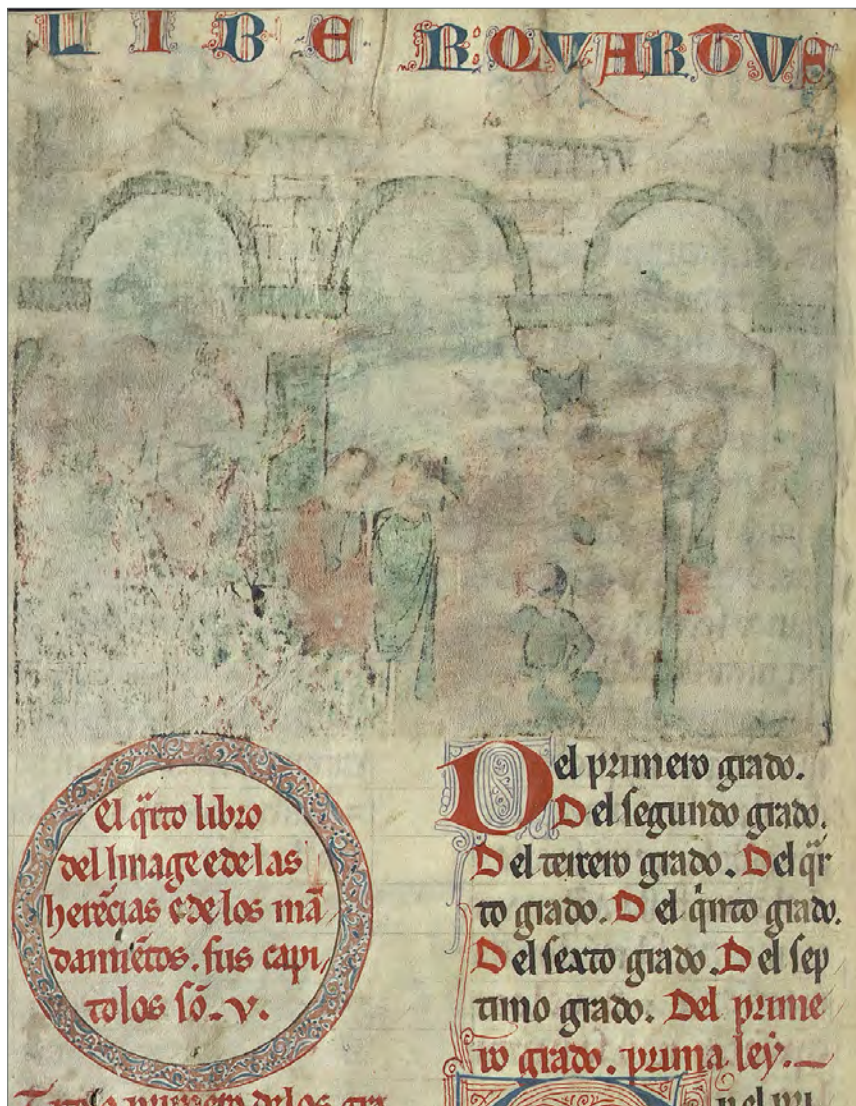 LIBER QVARTVS
El q̃rto libro
del linage e de las
herẽcias e de los mã
damiẽtos. sus capi
tolos sõ. v.
Del primero grado.
Del segundo grado.
Del tercero grado. Del q̃r
to grado. Del q̃nto grado.
Del sexto grado. Del sep
timo grado. Del prime
ro grado. prima ley.